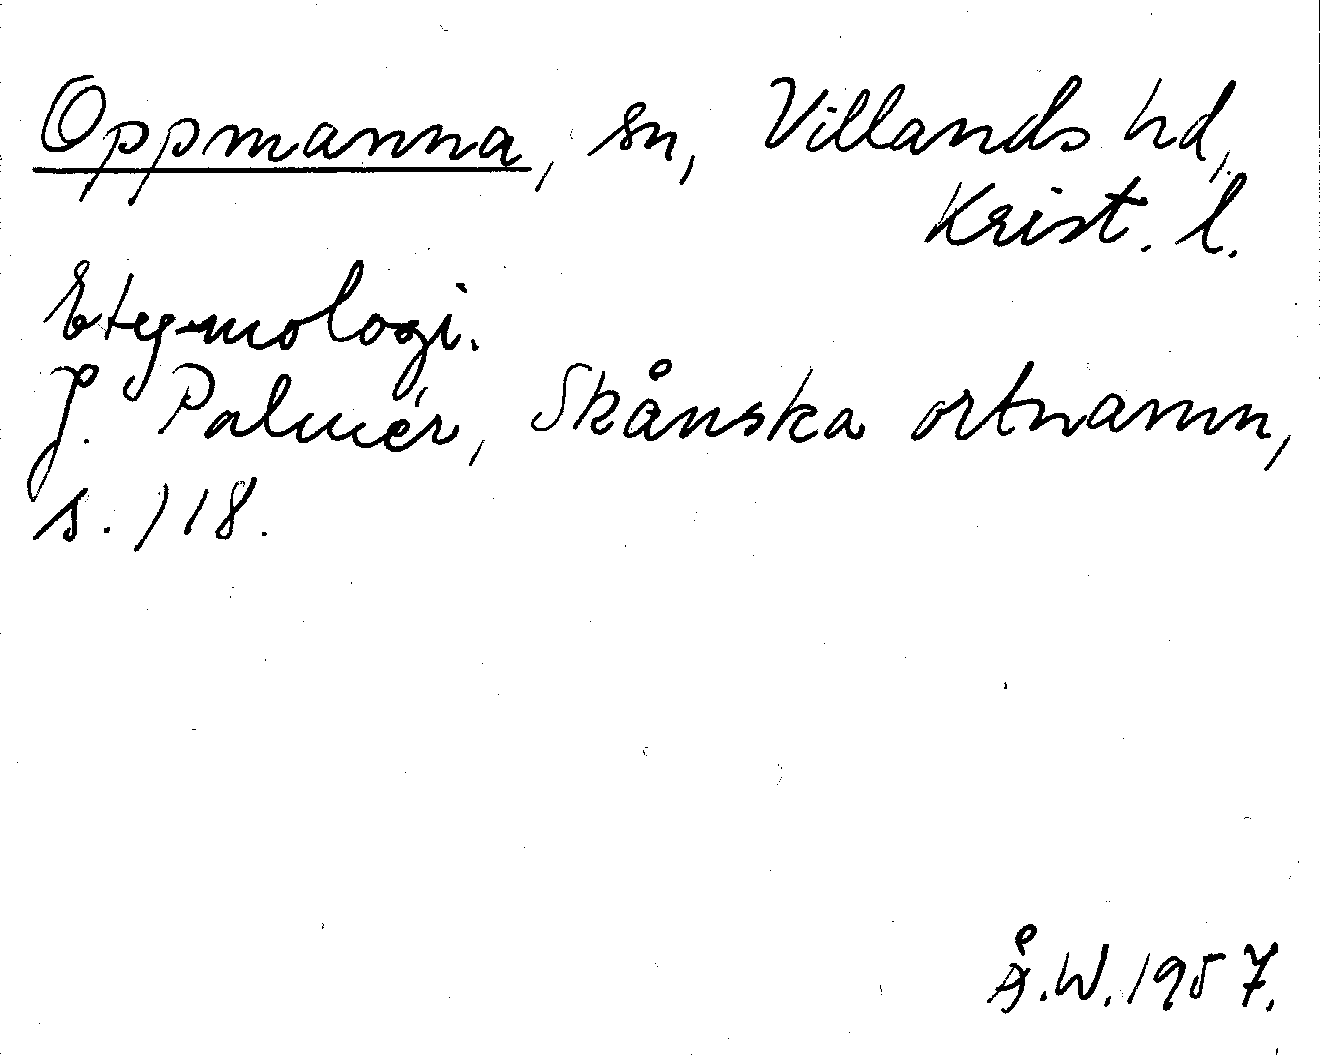 Oppmanna, sn, Villands hd,
Krist. l.
Etymologi.
J. Palmér, Skånska ortnamn,
s. 118.
Å.W. 1957.